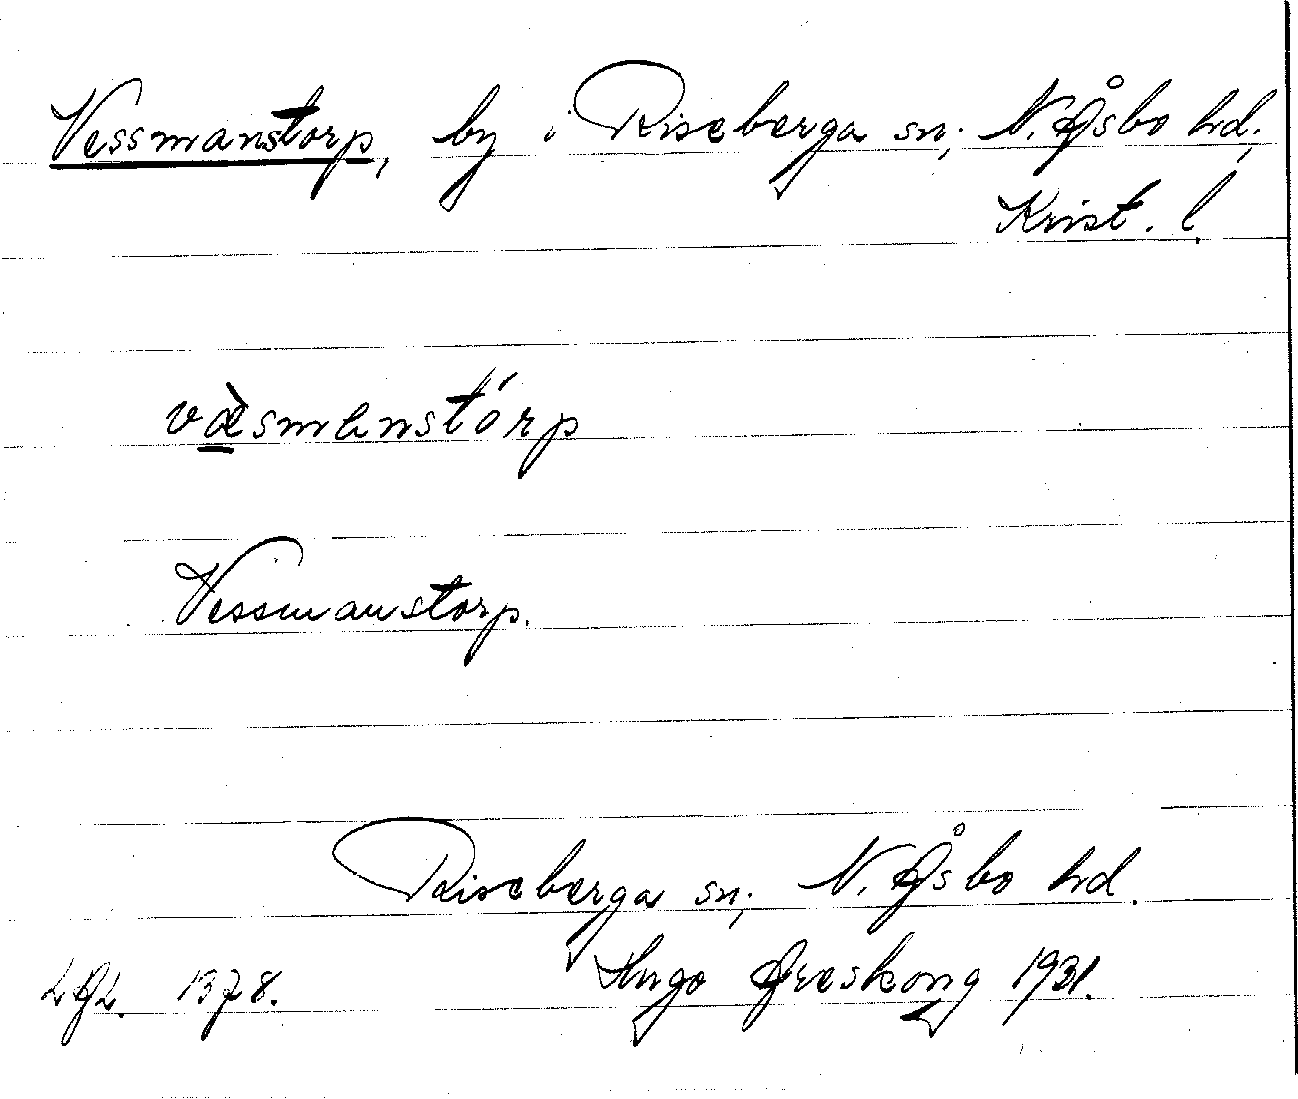 Vessmanstorp, by i Riseberga sn, N. Åsbo hd,
Krist. l.
væ̀smanstórp
Vessmanstorp.
Riseberga sn, N. Åsbo hd.
Hugo Areskoug 1931.
LAL. 1378.